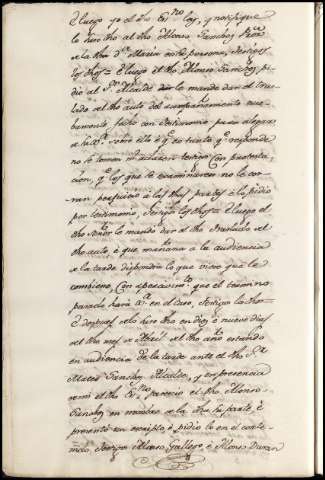 E luego yo el dho Essno ley, y notifiqué
lo suso dho al dho Alonso Sanchez
de la dha Da. Maria en su persona, testigos
los dhos = E luego el dho Alonso Sanchez, pi
dio al Sr. Alcalde le mande dar el tras
lado del dho auto del
bamente, fecho con testimonio para alegar
de su dro. sobre ello é que en tanto que responde
no se tomen ni saquen testigos con protesta
cion, que los que se examinaren no le co
rran perjuicio a los dhos partes é lo pidio
por testimonio, testigos los dhos = E luego el
dho Señor le mandó dar el dho traslado del
dho auto, é que mañana a la audiencia
de la tarde disponga lo que viere que le
conviene, con apercivimto. que el termino
pasado hará en el caso, testigos los dhos =
E despues de lo suso dho en diez é nueve dias
del dho mes de Abril del dho año estando
en audiencia de la tarde ante el dho Sr.
Mateo Sanchez Alcalde, y en presencia
de mi el dho Essno parecio el dho Alonso
Sanchez en nombre de la dha su parte, é
presentó un escripto, é pidió lo en el conte
nido testigos Alonso Gallego, é Alonso Duran